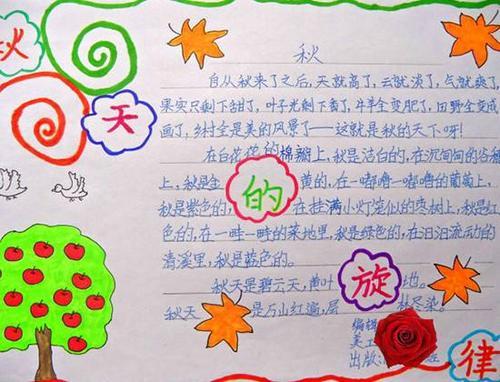 秋
天
的
旋
律
秋
自从秋来了之后,天就高了,云就淡了,气就爽了,
果实只剩下甜了,叶子光剩下香了,牛羊全变肥了,田野全变成
画了,乡村全是美的风景了——这就是秋的天下呀!
在白花花的棉瓣上,秋是洁白的,在沉甸甸的谷穗
上,秋是金黄的,在一嘟噜一嘟噜的葡萄上,
秋是紫色的,在挂满小灯笼似的枣树上,秋是红
色的,在一畦一畦的菜地里,秋是绿色的,在汩汩流动的
清溪里,秋是蓝色的。
秋天是碧云天,黄叶地。
秋天是万山红遍,层林尽染。
编辑
美工
出版: